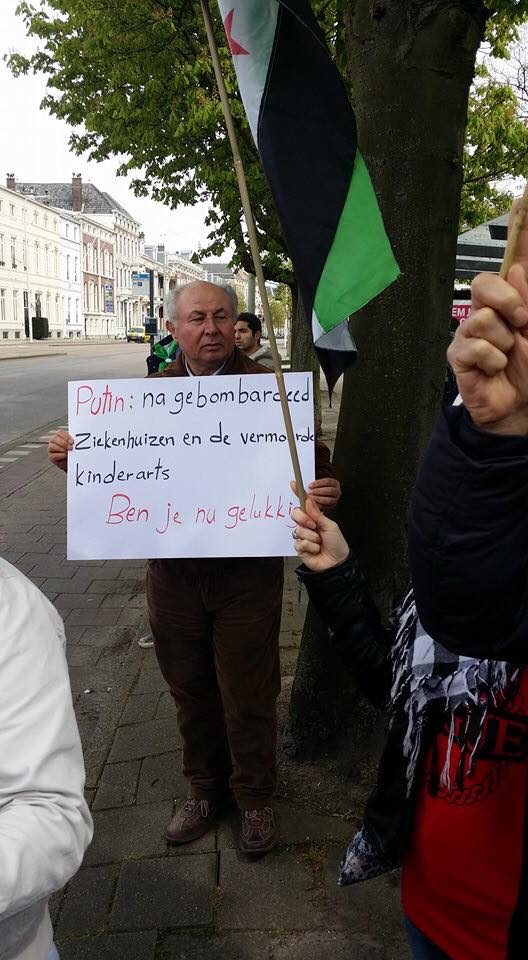 Putin: na gebombardeed
Ziekenhuizen en de vermoorde
kinderarts
Ben je nu gelukkig